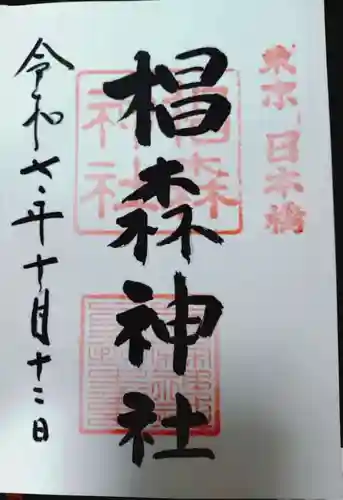 東京 日本橋
椙森神社
椙森
神社
令和七年十月十二日